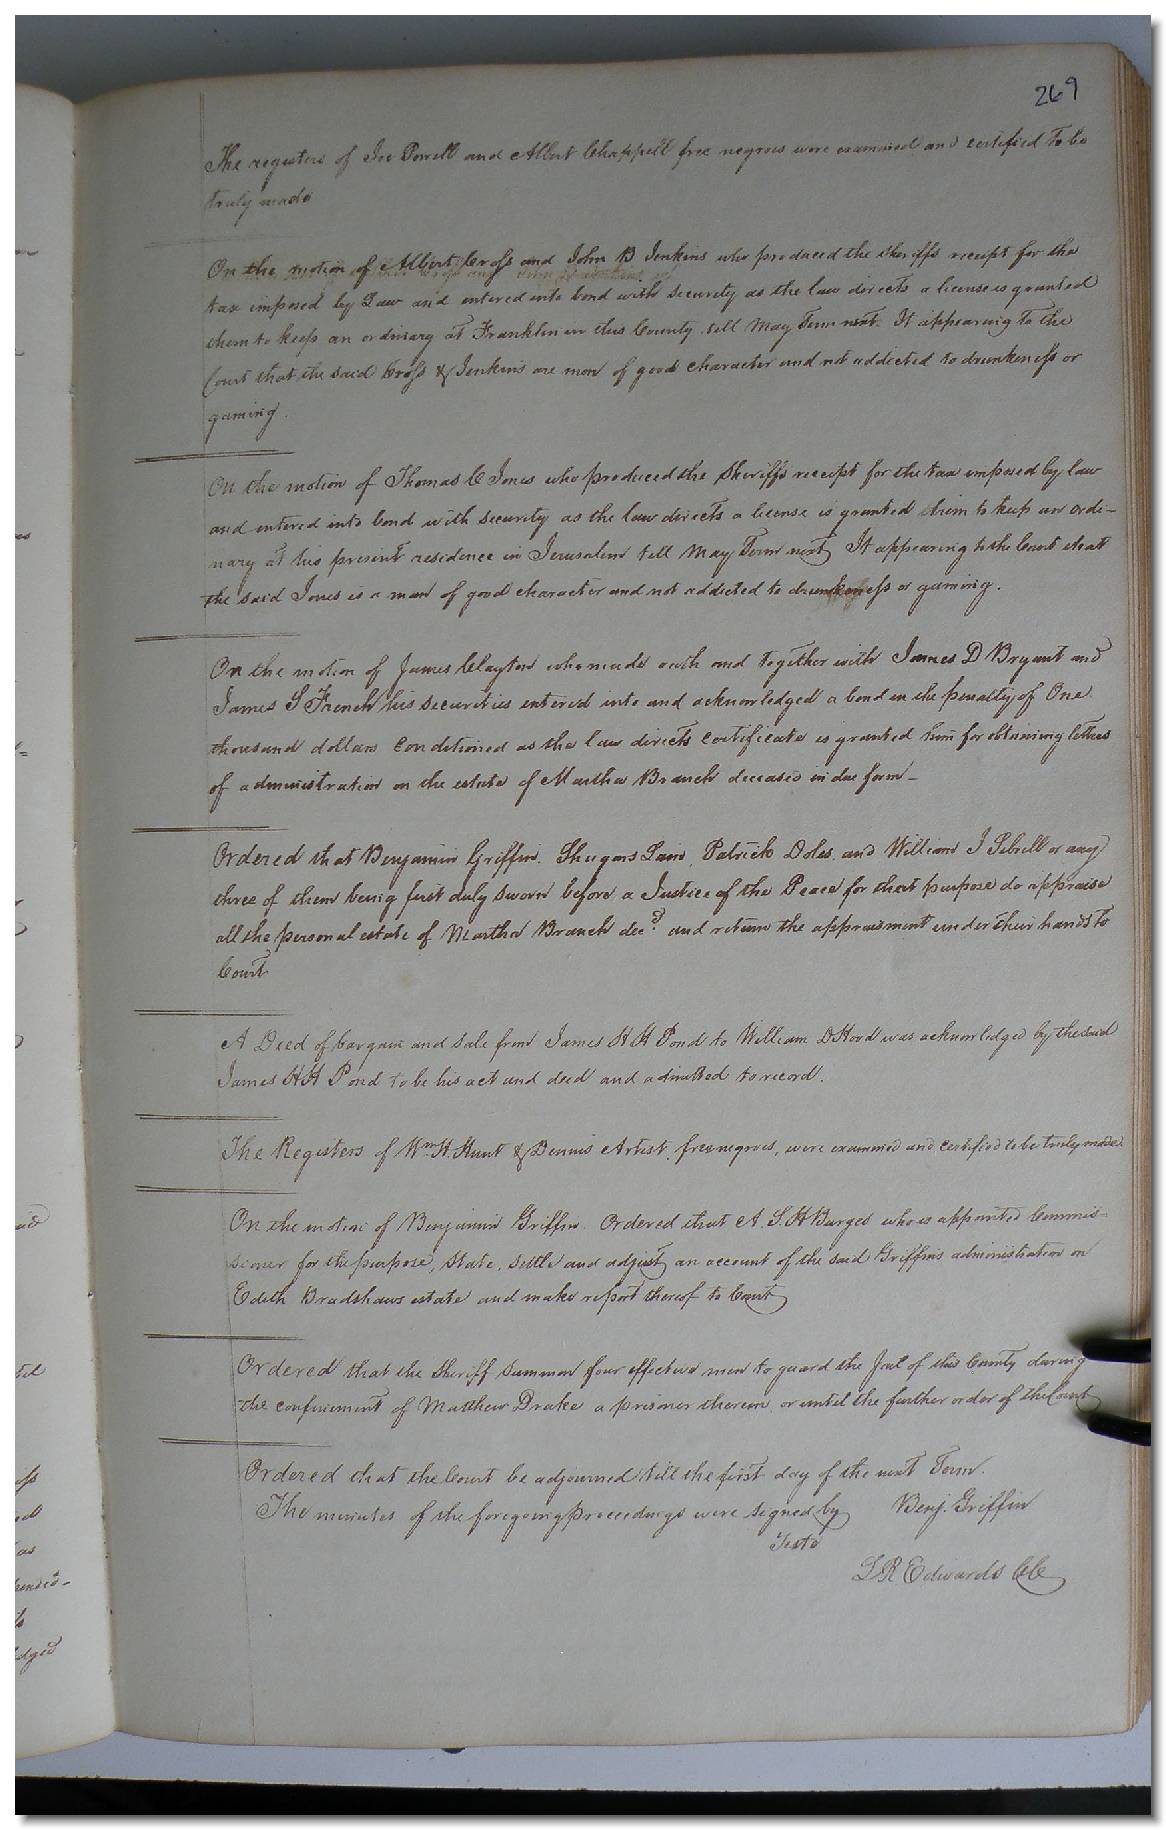 269
The registers of Joe Powell and Albert Chappell free negroes were examined and certified to be
truly made
On the motion of Albert Cross and John B Jenkins who produced the sheriffs receipt for the
tax imposed by Law and entered into bond with security as the law directs a license is granted
them to keep an ordinary at Franklin in this County till May Term next. It appearing to the
Court that the said Cross & Jenkins are men of good character and not addicted to drunkeness or
gaming.
On the motion of Thomas C Jones who produced the Sheriffs receipt for the tax imposed by law
and entered into bond with security as the law directs a license is granted him to keep an ordi-
nary at his present residence in Jerusalem till May Term next It appearing to the Court that
the said Jones is a man of good character and not addicted to drunkeness or gaming.
On the motion of James Clayton who made oath and together with James D Bryant and
James S French his securities entered into and acknowledged a bond in the penalty of One
thousand dollars conditioned as the law directs certificate is granted him for obtaining letters
of administration on the estate of Martha Branch deceased in due form -
Ordered that Benjamin Griffin, Shugars Lain, Patrick Doles, and William J Sebrell or any
three of them being first duly sworn before a Justice of the Peace for that purpose do appraise
all the personal estate of Martha Branch decd. and return the appraisment under their hands to
Court
A Deed of bargain and Sale from James H H Pond to William D Hood was acknowledged by the said
James H H Pond to be his act and deed and admitted to record.
The Registers of Wm. H. Hunt & Dennis Artist, free negroes, were examined and certified to be truly made.
On the motion of Benjamin Griffin. Ordered that A. S. H Burges who is appointed Commis-
sioner for the purpose, State, settle and adjust an account of the said Griffins administration on
Edith Bradshaws estate and make report thereof to Court
Ordered that the Sheriff summon four effective men to guard the Jail of this County during
the confinement of Matthew Drake a prisoner therein, or until the further order of the Court
Ordered that the Court be adjourned till the first day of the next Term.
The minutes of the foregoing proceedings were signed by Benj. Griffin
Teste
L R Edwards CC